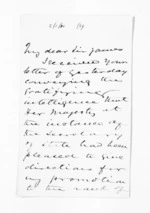 My dear Sir James
I received your
letter of yesterday
conveying the
gratifying
intelligence that
Her Majesty at
the instance of
the Secretary
of State had been
pleased to give
directions for
my promotion
to the rank of